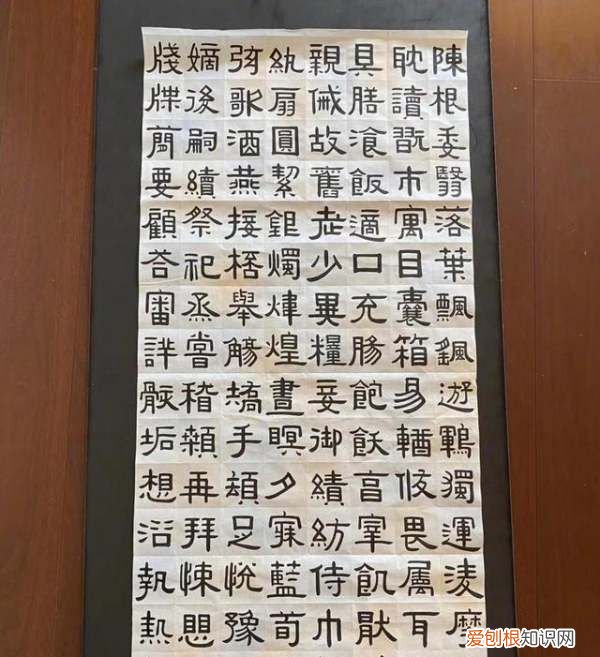 陳根委翳落葉飄颻遊鵾獨運淩摩
耽讀翫市寓目囊箱易輶攸畏屬耳
具膳飡飯適口充腸飽飫烹宰飢厭
親戚故舊老少異糧妾御績紡侍巾
紈扇圓絜銀燭煒煌晝暝夕寐藍荀
弦歌酒燕接桮舉觴矯手頓足悅豫
嫡後嗣續祭祀烝嘗稽顙再拜悚愳
牋牒簡要顧荅審詳骸垢想浴執熱
爱刨根知识网